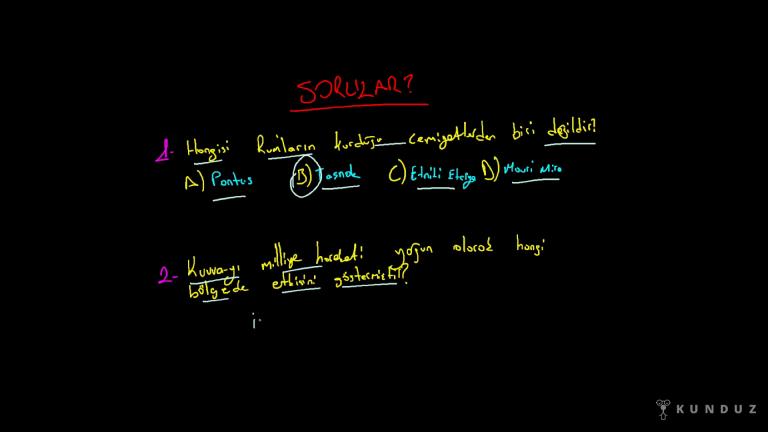 SORULAR?
1- Hangisi Rumların kurduğu cemiyetlerden biri değildir?
A) Pontus B) Taşnak C) Etniki Eterya D) Mavri Mira
2- Kuvva-yı milliye hareketi yoğun olarak hangi
bölgede etkisini göstermiştir?
i
KUNDUZ